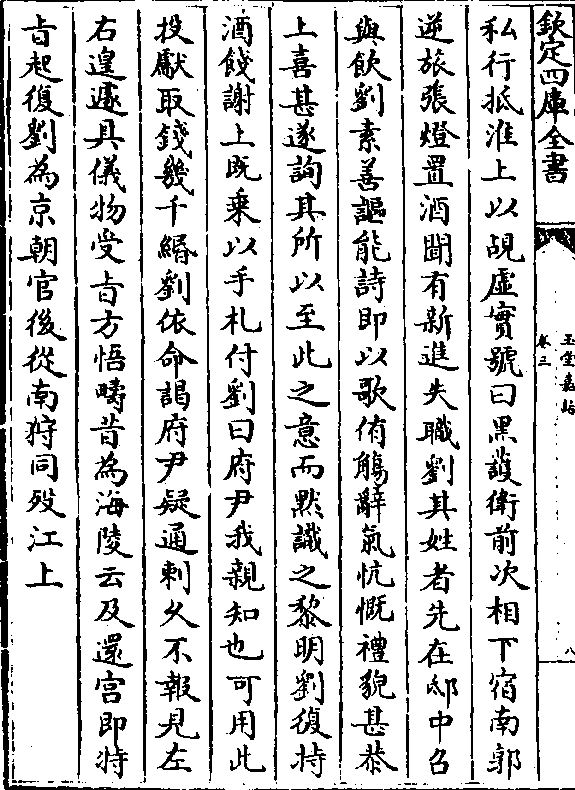 欽定四庫全書
玉堂嘉話
卷三
八
私行抵淮上以覘虛實號曰黑護衛前次相下宿南郭
逆旅張燈置酒聞有新進失職劉其姓者先在邸中召
與飲劉素善謳能詩即以歌侑觴辭氣忼慨禮貌甚恭
上喜甚遂詢其所以至此之意而黙識之黎明劉復持
酒餞謝上既乘以手札付劉曰府尹我親知也可用此
投獻取錢幾千緡劉依命謁府尹疑通刺乆不報見左
右遑遽具儀物受㫖方悟疇昔為海陵云及還宫即特
㫖起復劉為京朝官後從南狩同殁江上